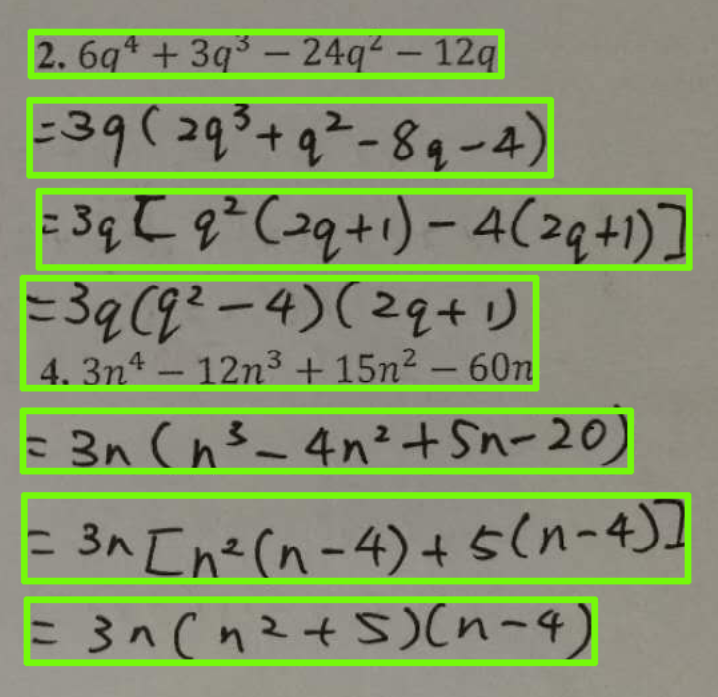 2. 6q⁴ + 3q³ − 24q² − 12q
=3q(2q³+q²-8q-4)
=3q[q²(2q+1)-4(2q+1)]
=3q(q²-4)(2q+1)
4. 3n⁴ − 12n³ + 15n² − 60n
=3n(n³-4n²+5n-20)
=3n[n²(n-4)+5(n-4)]
=3n(n²+5)(n-4)